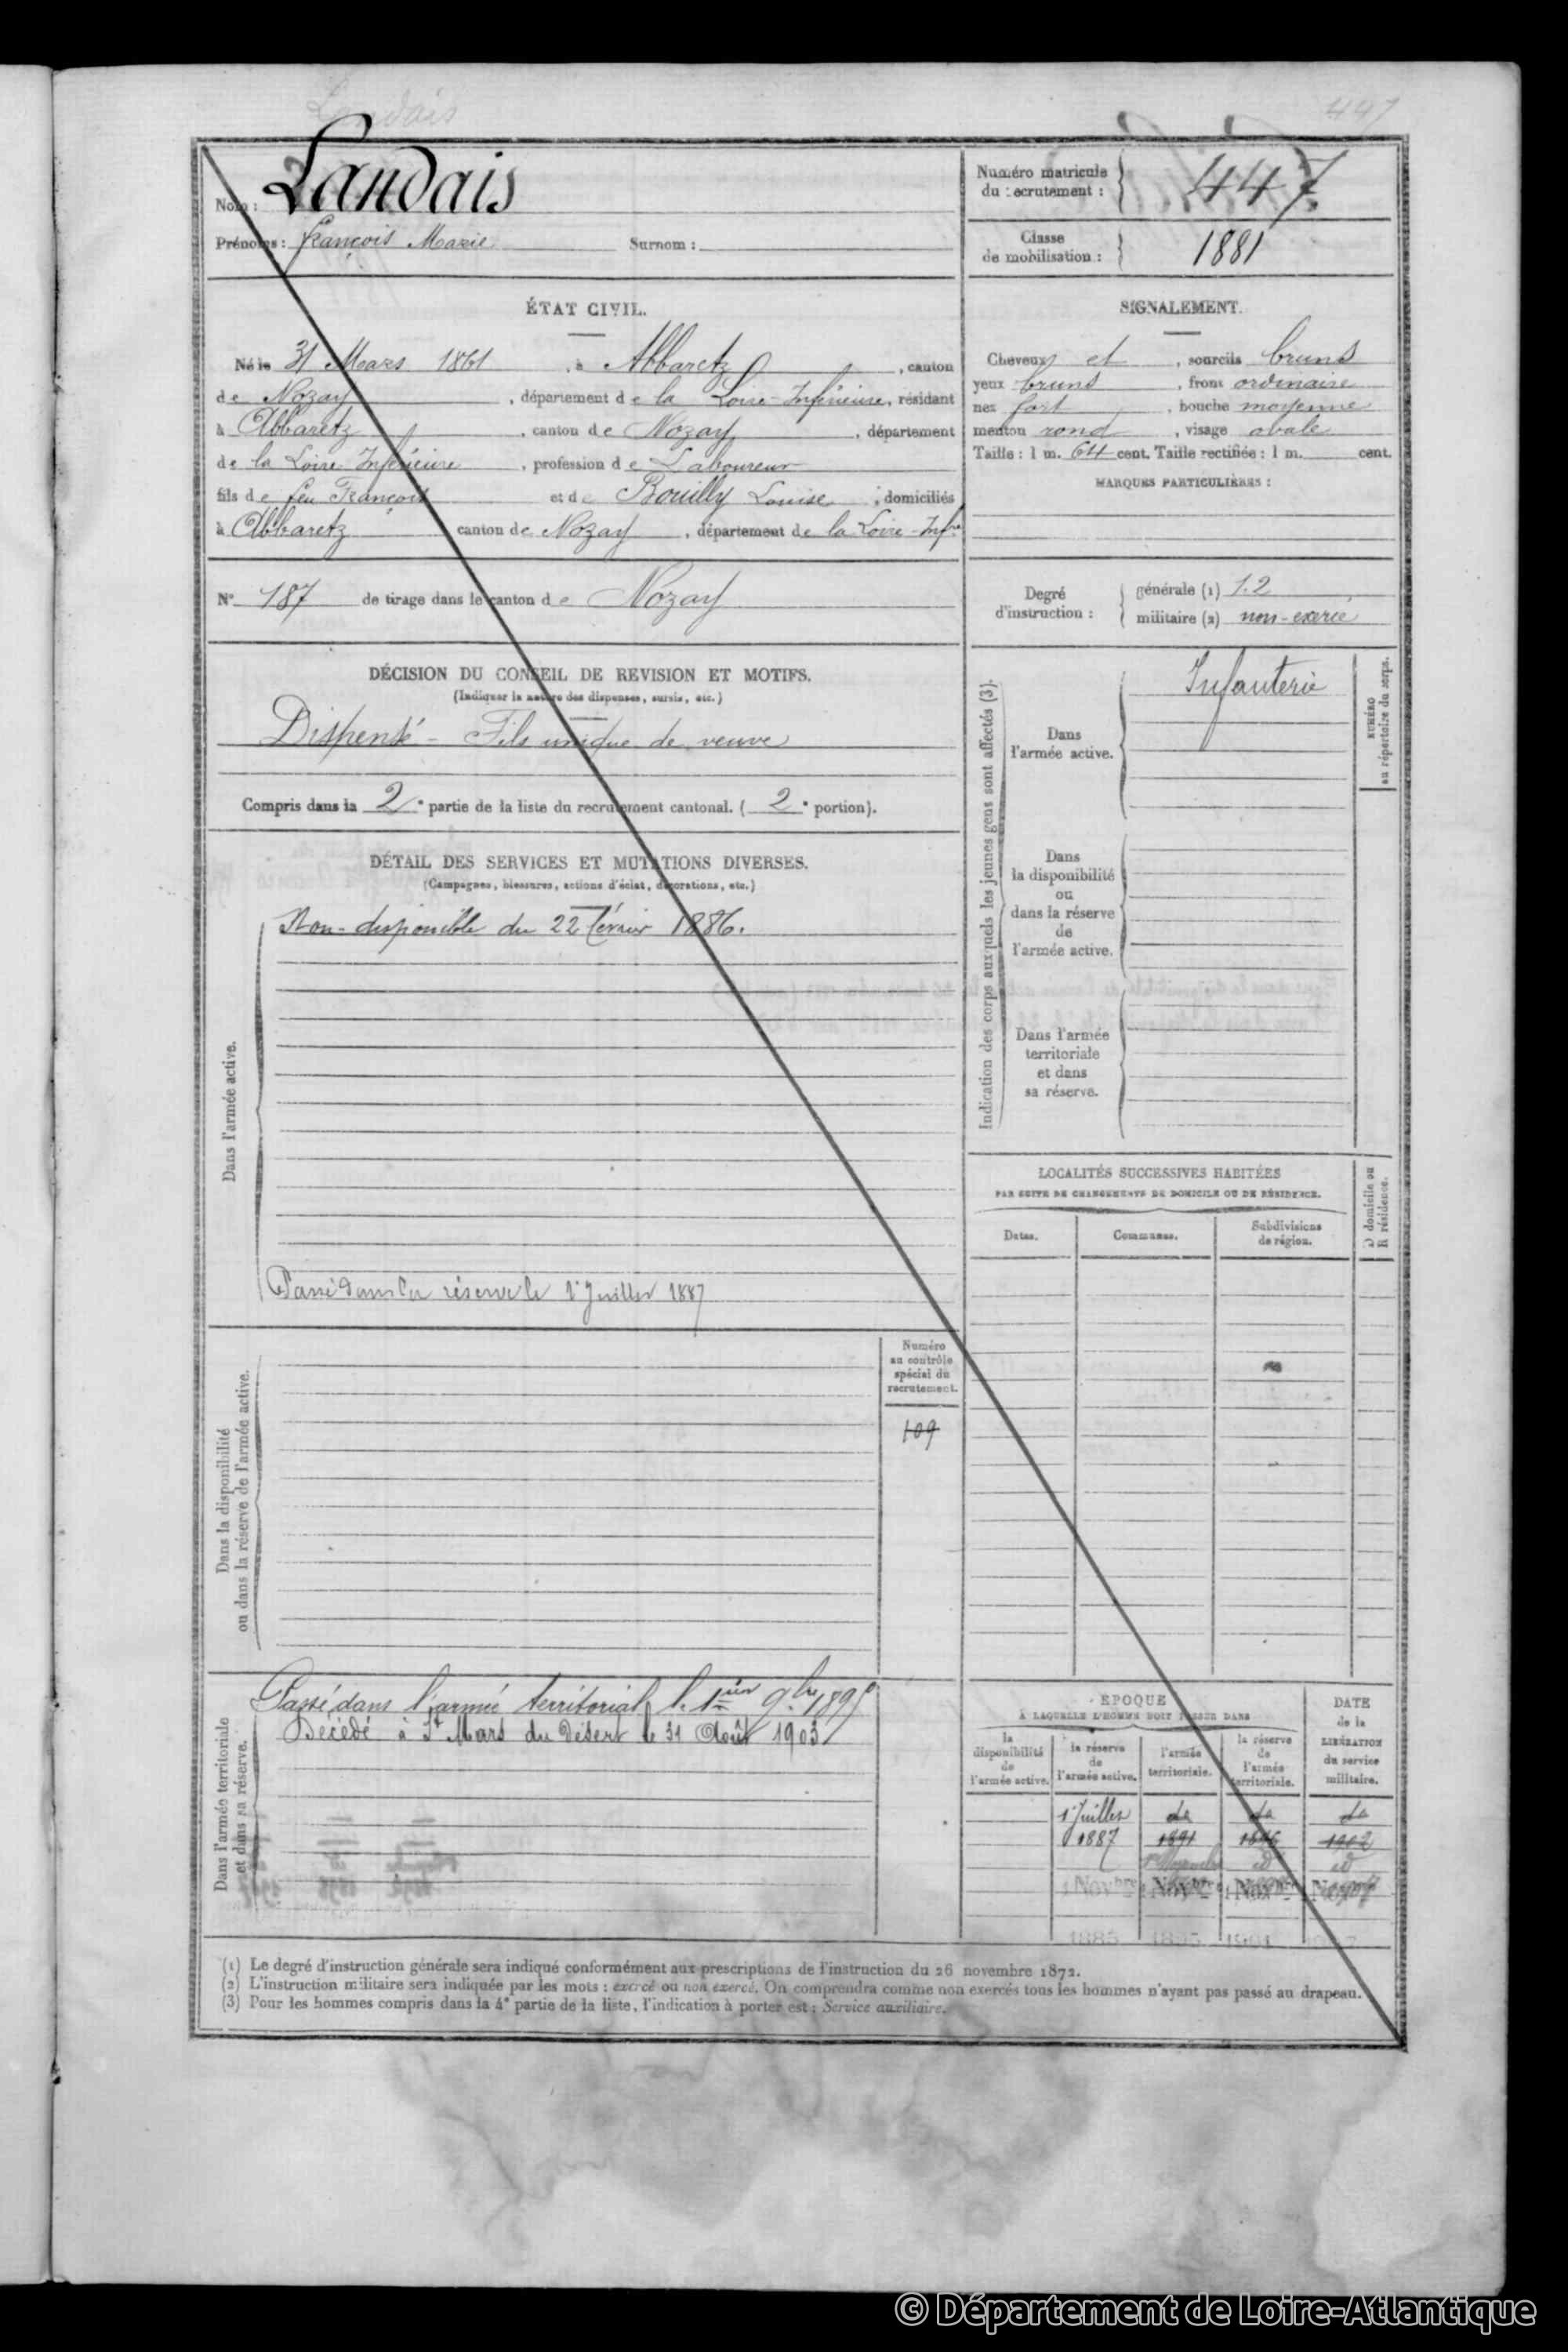 Landais
447
Nom : Landais
Prénoms : François Marie Surnom :
Numéro matricule
du recrutement : 447
Classe
de mobilisation : 1881
ÉTAT CIVIL.
Né le 31 Mars 1861, à Abbaretz, canton
de Nozay, département de la Loire-Inférieure, résidant
à Abbaretz, canton de Nozay, département
de la Loire Inférieure, profession de Laboureur
fils de feu François et de Bouilly Louise, domiciliés
à Abbaretz canton de Nozay, département de la Loire-Infre
SIGNALEMENT.
Cheveux et, sourcils bruns
yeux bruns, front ordinaire
nez fort, bouche moyenne
menton rond, visage ovale
Taille : 1 m. 64 cent. Taille rectifiée : 1 m. cent.
MARQUES PARTICULIÈRES :
N° 187 de tirage dans le canton de Nozay
Degré
d'instruction :
générale (1) 1.2
militaire (2) non-exercé
DÉCISION DU CONSEIL DE REVISION ET MOTIFS.
(Indiquer la nature des dispenses, sursis, etc.)
Dispensé - Fils unique de veuve
Compris dans la 2e partie de la liste du recrutement cantonal. ( 2e portion).
DÉTAIL DES SERVICES ET MUTATIONS DIVERSES.
(Campagnes, blessures, actions d'éclat, décorations, etc.)
Dans l'armée active.
Non-disponible du 22 février 1886.
Passé dans la réserve le 1er Juillet 1887
Indication des corps auxquels les jeunes gens sont affectés (3).
Dans
l'armée active.
Infanterie
NUMÉRO
au répertoire du corps.
Dans
la disponibilité
ou
dans la réserve
de
l'armée active.
Dans l'armée
territoriale
et dans
sa réserve.
LOCALITÉS SUCCESSIVES HABITÉES
PAR SUITE DE CHANGEMENTS DE DOMICILE OU DE RÉSIDENCE.
Dates.
Communes.
Subdivisions
de région.
D domicile ou
R résidence.
Dans la disponibilité
ou dans la réserve de l'armée active.
Numéro
au contrôle
spécial du
recrutement.
109
Dans l'armée territoriale
et dans sa réserve.
Passé dans l'armée territoriale le 1er 9bre 1895
Décédé à St Mars du Désert le 31 Août 1903
ÉPOQUE
À LAQUELLE L'HOMME DOIT PASSER DANS
la
disponibilité
de
l'armée active.
la réserve
de
l'armée active.
l'armée
territoriale.
la réserve
de
l'armée
territoriale.
DATE
de la
LIBÉRATION
du service
militaire.
1er Juillet do do do
1887 1891 1896 1902
id id
1 Novbre 1 Novbre 1 Novbre
1885 1895 1901
(1) Le degré d'instruction générale sera indiqué conformément aux prescriptions de l'instruction du 26 novembre 1872.
(2) L'instruction militaire sera indiquée par les mots : exercé ou non exercé. On comprendra comme non exercés tous les hommes n'ayant pas passé au drapeau.
(3) Pour les hommes compris dans la 4e partie de la liste, l'indication à porter est : Service auxiliaire.
© Département de Loire-Atlantique